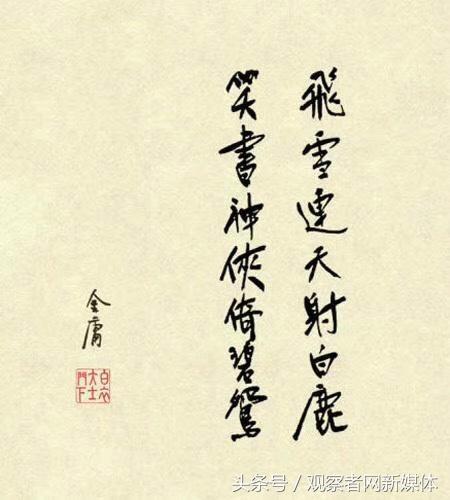 飛雪連天射白鹿
笑書神俠倚碧鴛
金庸
白衣
大士
門下
头条号／观察者网新媒体